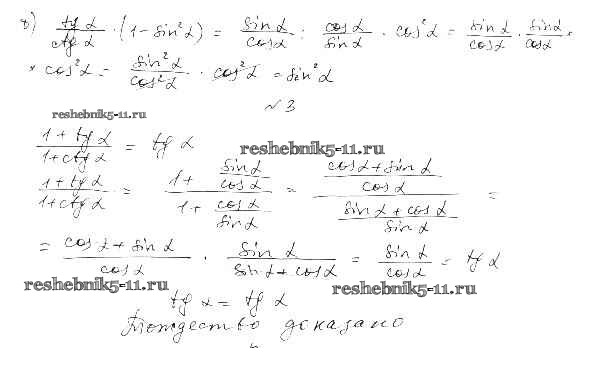 в) tg α / ctg α · (1 - sin²α) = sin α / cos α : cos α / sin α · cos²α = sin α / cos α · sin α / cos α ×
× cos²α = sin²α / cos²α · cos²α = sin²α
№3
reshebnik5-11.ru
(1 + tg α) / (1 + ctg α) = tg α
reshebnik5-11.ru
(1 + tg α) / (1 + ctg α) = (1 + sin α / cos α) / (1 + cos α / sin α) = ((cos α + sin α) / cos α) / ((sin α + cos α) / sin α) =
= (cos α + sin α) / cos α · sin α / (sin α + cos α) = sin α / cos α = tg α
reshebnik5-11.ru
reshebnik5-11.ru
tg α = tg α
Тождество доказано